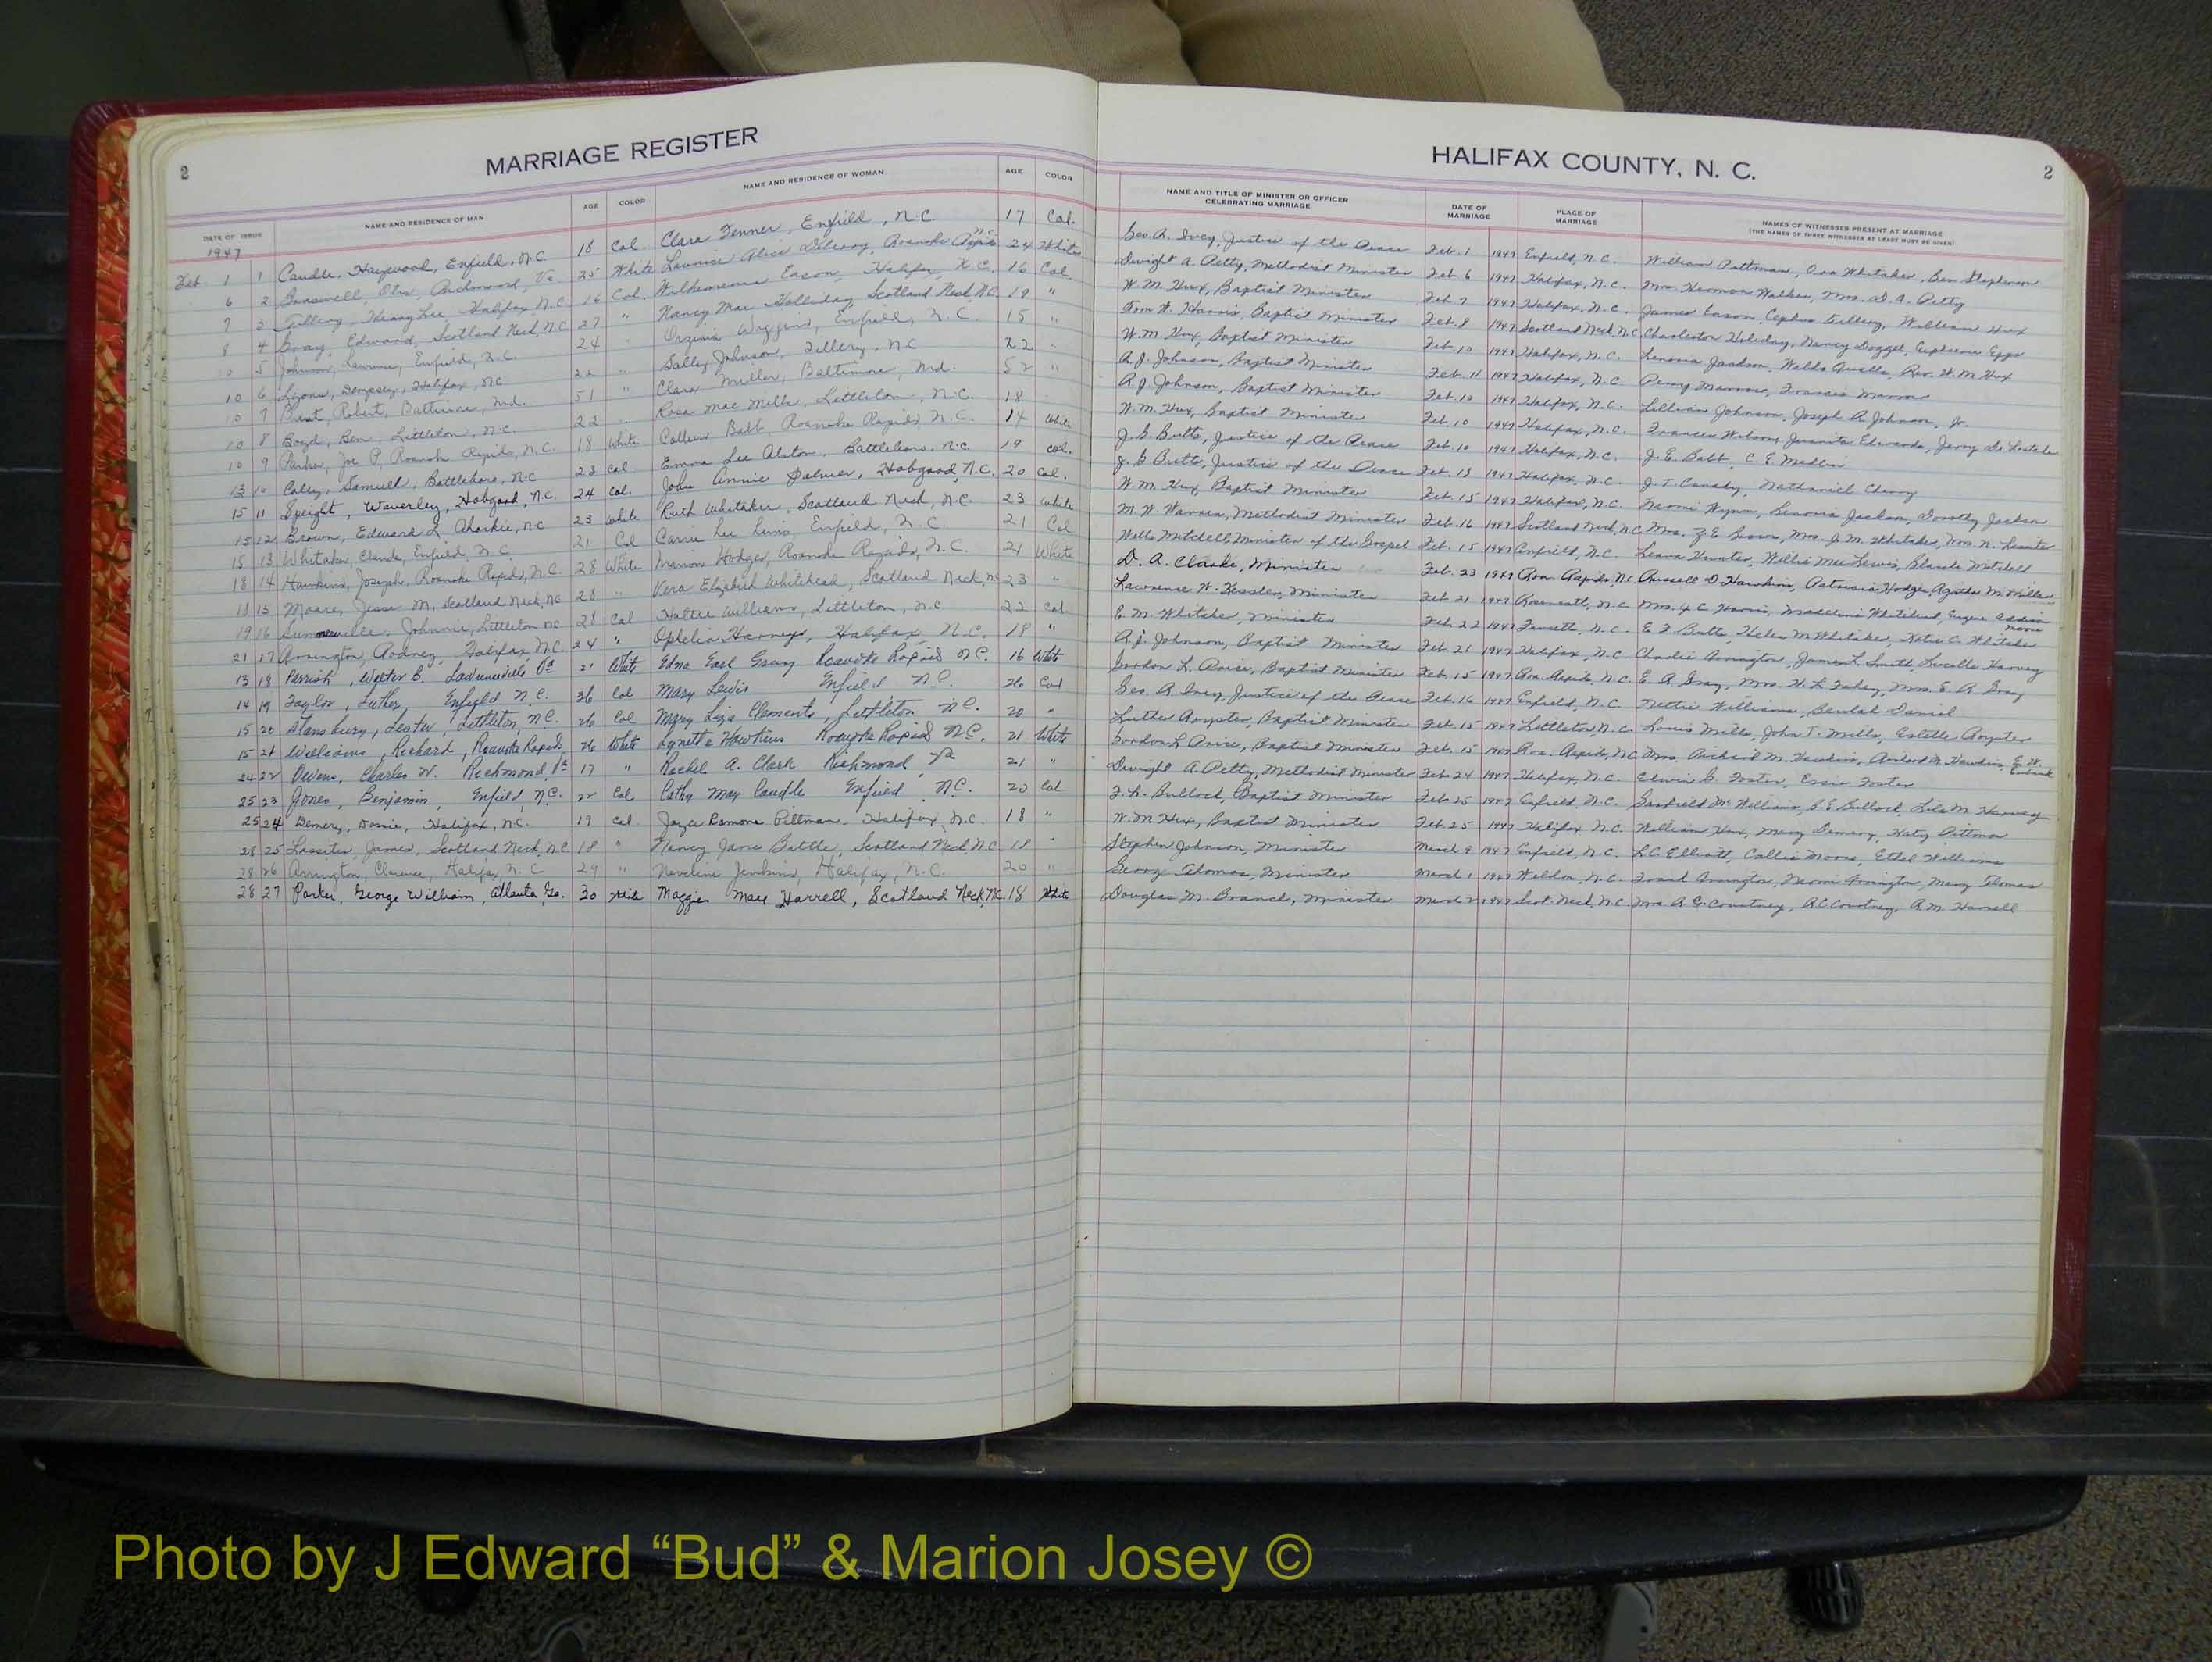 2
MARRIAGE REGISTER
DATE OF ISSUE NAME AND RESIDENCE OF MAN AGE COLOR NAME AND RESIDENCE OF WOMAN AGE COLOR
1947
Feb. 1 1 Caudle, Haywood, Enfield, N.C. 18 Col. Clara Fenner, Enfield, N.C. 17 Col.
6 2 Otis, Richmond, Va 25 White Alice Roanoke Rapids 24 White
7 3 Halifax N.C. 16 Col. Wilhemenia Eason, Halifax, N.C. 16 Col.
8 4 Gray, Edward, Scotland Neck, N.C. 27 " Nancy Mae Holliday, Scotland Neck, N.C. 19 "
10 5 Johnson, Lawrence, Enfield, N.C. 24 " Wiggins, Enfield, N.C. 15 "
10 6 Lyons, Dempsey, Halifax, N.C. 22 " Sally Johnson, Tillery, N.C. 22 "
10 7 Robert, Baltimore, Md. 51 " Clara Miller, Baltimore, Md. 52 "
10 8 Boyd, Ben, Littleton, N.C. 22 Rosa Mae Mills, Littleton, N.C. 18
10 9 Parker, Joe P, Roanoke Rapids, N.C. 18 White Colleen Babb, Roanoke Rapids, N.C. 14 White
13 10 Coley, Samuel, Battleboro, N.C. 23 Col. Emma Lee Alston, Battleboro, N.C. 19 Col.
15 11 Speight, Waverley, Hobgood, N.C. 24 Col. John Annie Palmer, Hobgood, N.C. 20 Col.
15 12 Brown, Edward L. Ahoskie, N.C. 23 White Ruth Whitaker, Scotland Neck, N.C. 23 White
15 13 Whitaker Claude, Enfield N.C. 21 Col Carrie Lee Lewis, Enfield, N.C. 21 Col
18 14 Hawkins, Joseph, Roanoke Rapids, N.C. 28 White Marion Hodges, Roanoke Rapids, N.C. 21 White
18 15 Moore, Jesse M, Scotland Neck, N.C. 28 " Vera Elizabeth Whitehead, Scotland Neck, N.C. 23 "
19 16 Johnnie, Littleton N.C. 28 Col Hattie Williams, Littleton, N.C 22 Col.
21 17 Arrington, Rodney, Halifax N.C. 24 " Ophelia Harvey, Halifax N.C. 18 "
13 18 Perrish, Walter B. Lawrenceville Va 21 White Edna Earl Gray Roanoke Rapids N.C. 16 White
14 19 Taylor, Luther, Enfield N.C. 36 Col Mary Lewis Enfield N.C. 26 Col
15 20 Stansbury, Lester, Littleton, N.C. 26 Col Mary Liza Clements, Littleton N.C. 20 "
15 21 Williams, Richard, Roanoke Rapids, 26 White Agnette Hawkins Roanoke Rapids N.C. 21 White
24 22 Owens, Charles W. Richmond, Va 17 " Rachel A. Clark Richmond Va 21 "
25 23 Jones, Benjamin, Enfield, N.C. 22 Col Cathy May Caudle Enfield N.C. 20 Col
25 24 Demery, Halifax, N.C. 19 Col Joyce Ramona Pittman, Halifax, N.C. 18 "
28 25 Lassiter, James, Scotland Neck, N.C. 18 " Nancy Jane Battle, Scotland Neck, N.C. 18 "
28 26 Arrington, Clarence, Halifax, N.C. 29 " Neveline Jenkins, Halifax, N.C. 20 "
28 27 Parker, George William, Atlanta, Ga. 30 White Maggie Mae Harrell, Scotland Neck, N.C. 18 White
HALIFAX COUNTY, N. C.
2
NAME AND TITLE OF MINISTER OR OFFICER CELEBRATING MARRIAGE DATE OF MARRIAGE PLACE OF MARRIAGE NAMES OF WITNESSES PRESENT AT MARRIAGE
(THE NAMES OF THREE WITNESSES AT LEAST MUST BE GIVEN)
Geo. R. Ivey, Justice of the Peace Feb. 1 1947 Enfield, N.C. William Pittman, Ora Whitaker, Ben Stephenson
Dwight A. Petty, Methodist Minister Feb 6 1947 Halifax, N.C. Mrs Herman Walker, Mrs. D. A. Petty
W. M. Hux, Baptist Minister Feb 7 1947 Halifax, N.C. James Eason, Cephus Tillery, William Hux
Tom H. Harris, Baptist Minister Feb. 8 1947 Scotland Neck, N.C. Charleston Holiday, Nancy Epps
W. M. Hux, Baptist Minister Feb. 10 1947 Halifax, N.C. Lenoria Jackson, Rev. W. M. Hux
A. J. Johnson, Baptist Minister Feb. 11 1947 Halifax, N.C. Percy Marrow, Frances Marrow
A. J. Johnson, Baptist Minister Feb. 10 1947 Halifax, N.C. Lillian Johnson, Joseph A. Johnson, Jr.
W. M. Hux, Baptist Minister Feb. 10 1947 Halifax, N.C. Frances Wilson, Juanita Edwards, Jerry
J. G. Butts, Justice of the Peace Feb. 10 1947 Halifax, N.C. J. E. Babb, C. E. Medlin
J. G. Butts, Justice of the Peace Feb. 13 1947 Halifax, N.C. J. T. Canady, Nathaniel Cherry
W. M. Hux, Baptist Minister Feb. 15 1947 Halifax, N.C. Naomi Wynn, Lenoria Jackson, Dorothy Jackson
M. W. Warren, Methodist Minister Feb. 16 1947 Scotland Neck, N.C. Mrs. Z. E. Brown, Mrs. J. M. Whitaker, Mrs. N. Lassiter
Wells Mitchell Minister of the Gospel Feb. 15 1947 Enfield, N.C. Leana Hunter, Willie Mae Lewis, Blanche Mitchell
D. A. Clarke, Minister Feb. 23 1947 Roa. Rapids, N.C. Russell D. Hawkins, Patricia Hodges, Agatha M. Miller
Lawrence W. Kessler, Minister Feb 21 1947 Roseneath, N.C. Mrs. J. C. Harris, Madeline Whitehead, Eugene Addison Moore
E. M. Whitaker, Minister Feb. 22 1947 N.C. E. F. Butts, Helen M. Whitaker, Katie C. Whitaker
A. J. Johnson, Baptist Minister Feb. 21 1947 Halifax, N.C. Charlie Arrington, James L. Smith, Lucille Harvey
Gordon L. Price, Baptist Minister Feb. 15 1947 Roa. Rapids, N.C. E. A. Gray, Mrs. H. L. Mrs. E. A. Gray
Geo. R. Ivey, Justice of the Peace Feb. 16 1947 Enfield, N.C. Nettie Williams, Beulah Daniel
Luther Royster, Baptist Minister Feb. 15 1947 Littleton, N.C. Louis Mills, John T. Mills, Estelle Royster
Gordon L. Price, Baptist Minister Feb. 15 1947 Roa. Rapids, N.C. Mrs. Richard M. Hawkins, Richard M. Hawkins, E. W.
Dwight A. Petty, Methodist Minister Feb. 24 1947 Halifax, N.C. Edwin G. Foster, Essie Foster
F. L. Bullock, Baptist Minister Feb. 25 1947 Enfield, N.C. Garfield McWilliams, S. E. Bullock, Lila M. Harvey
W. M. Hux, Baptist Minister Feb. 25 1947 Halifax N.C. William Hux, Mary Demery, Katy Pittman
Stephen Johnson, Minister March 9 1947 Enfield, N.C. L. C. Elliott, Callie Moore, Ethel Williams
George Thomas, Minister March 1 1947 Weldon, N.C. Arrington, Naomi Arrington, Mary Thomas
Douglas M. Branch, Minister March 2 1947 Scot. Neck, N.C. Mrs A. C. Courtney, A. C. Courtney, R. M. Harrell
Photo by J Edward “Bud” & Marion Josey ©